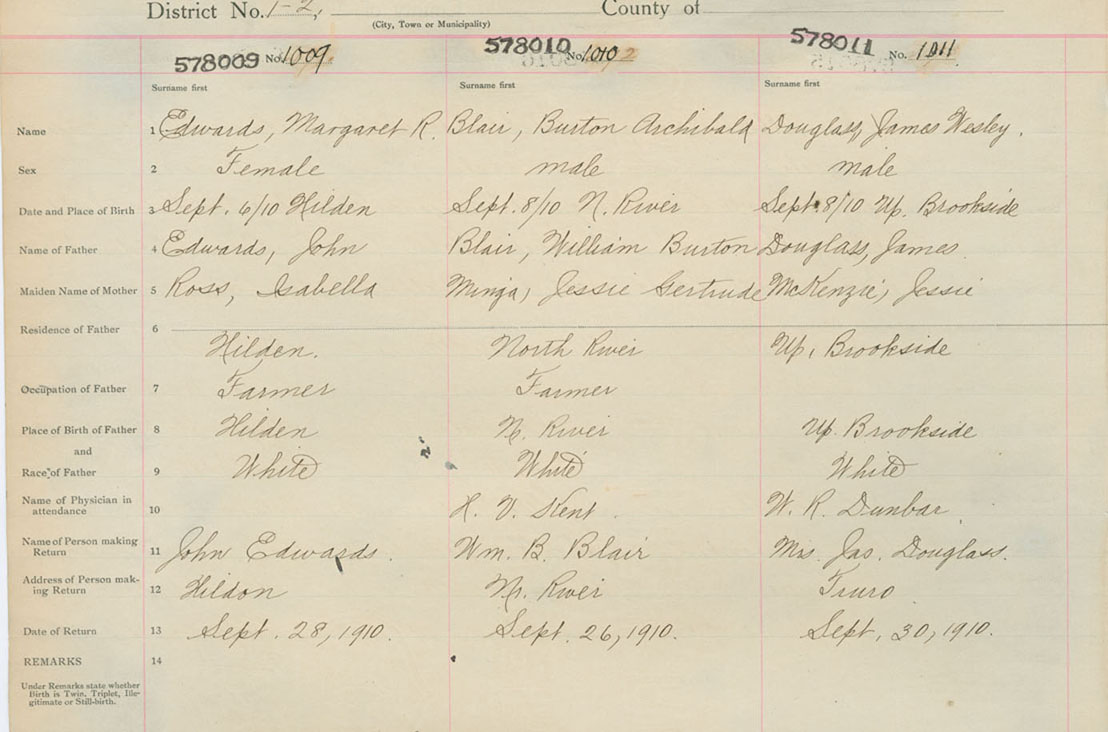 District No. 1-2, County of
(City, Town or Municipality)
578009 No. 1009. 578010 No. 1010 578011 No. 1011
Surname first Surname first Surname first
Name 1 Edwards, Margaret R. Blair, Burton Archibald Douglass, James Wesley.
Sex 2 Female male male
Date and Place of Birth 3 Sept. 6/10 Hilden Sept. 8/10 N. River Sept. 8/10 Up. Brookside
Name of Father 4 Edwards, John Blair, William Burton Douglass, James
Maiden Name of Mother 5 Ross, Isabella Minga, Jessie Gertrude McKenzie, Jessie
Residence of Father 6
Hilden. North River Up. Brookside
Occupation of Father 7 Farmer Farmer
Place of Birth of Father 8 Hilden N. River Up. Brookside
and
Race of Father 9 White White White
Name of Physician in
attendance 10 H. V. Kent. W. R. Dunbar.
Name of Person making
Return 11 John Edwards. Wm. B. Blair Mrs. Jas. Douglass.
Address of Person mak-
ing Return 12 Hildon N. River Truro
Date of Return 13 Sept. 28, 1910. Sept. 26, 1910. Sept. 30, 1910.
REMARKS 14
Under Remarks state whether
Birth is Twin, Triplet, Ille-
gitimate or Still-birth.